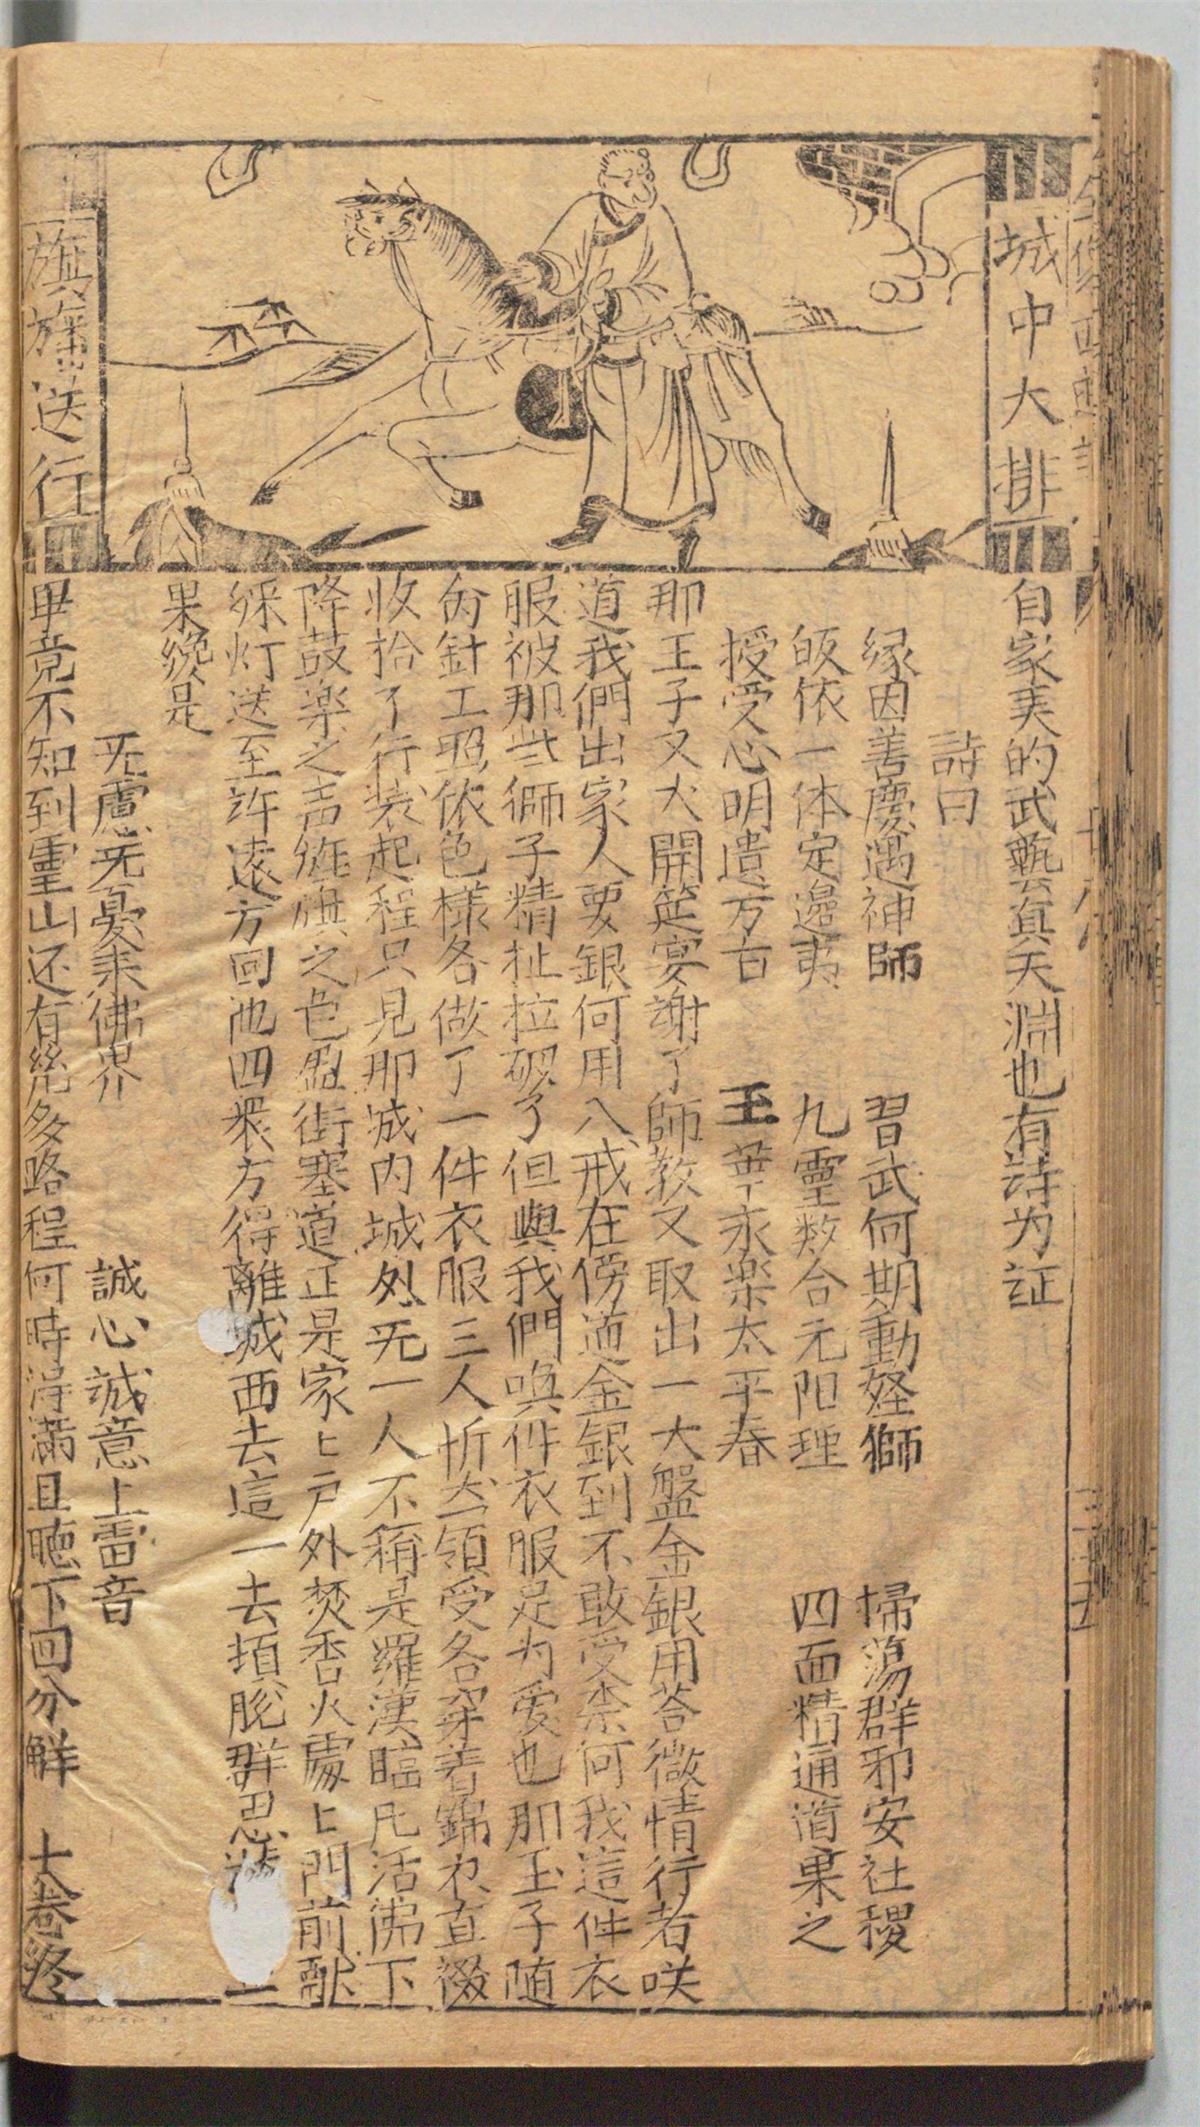 城中大排
旗旌送行
自家美的武藝真天渊也有詩为証
詩曰
緣因善慶遇神師　習武何期動怪獅　掃蕩群邪安社稷
皈依一体定邊夷　九霊数合元阳理　四面精通道果之
授受心明遺万古　玉華永楽太平春
那王子又大開筵宴謝了師教又取出一大盤金銀用荅微情行者咲
道我們出家人要銀何用八戒在傍道金銀到不敢受柰何我這件衣
服被那些獅子精扯拉破了但與我們喚件衣服足为爱也那王子随
針工照依色様各做了一件衣服三人忻然領受各穿着錦衣直裰
收拾了行裝起程只見那城内城外旡一人不稱是羅漢臨凡活佛下
降鼓楽之声旌旗之色盈街塞道正是家〻户外焚香火處〻門前献
綵灯送至許遠方回他四衆方得離城西去這一去頓脱群思
果纔是
旡慮旡憂来佛界　誠心誠意上雷音
畢竟不知到霊山还有幾多路程何時得滿且聴下回分解　十八卷终